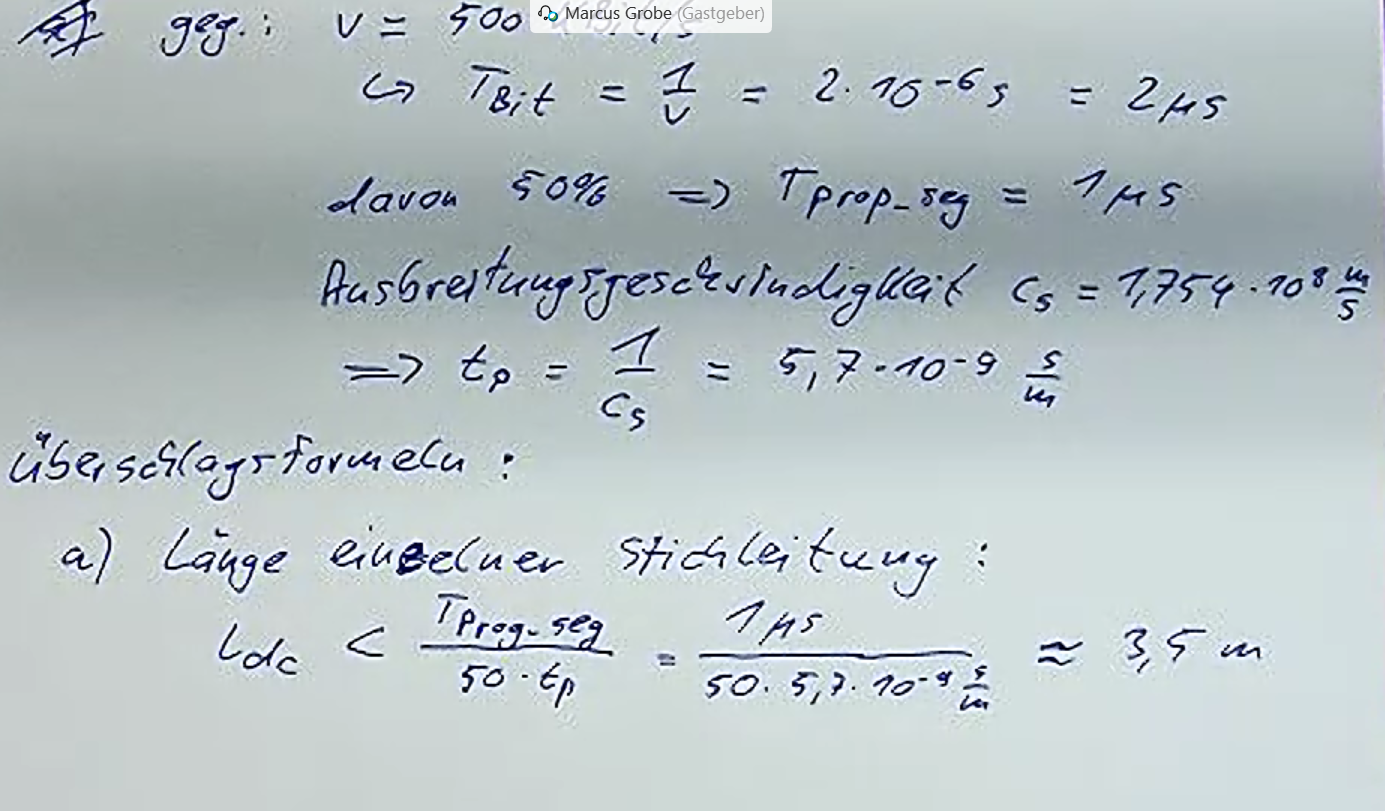 Marcus Grobe (Gastgeber)
geg.: v = 500
↳ T_Bit = 1/v = 2·10^-6 s = 2 µs
davon 50% => T_prop_seg = 1 µs
Ausbreitungsgeschwindigkeit c_s = 1,754·10^8 m/s
=> t_p = 1/c_s = 5,7·10^-9 s/m
Überschlagsformeln:
a) Länge einzelner Stichleitung:
L_dc < T_Prog_seg / (50·t_p) = 1 µs / (50·5,7·10^-9 s/m) ≈ 3,5 m